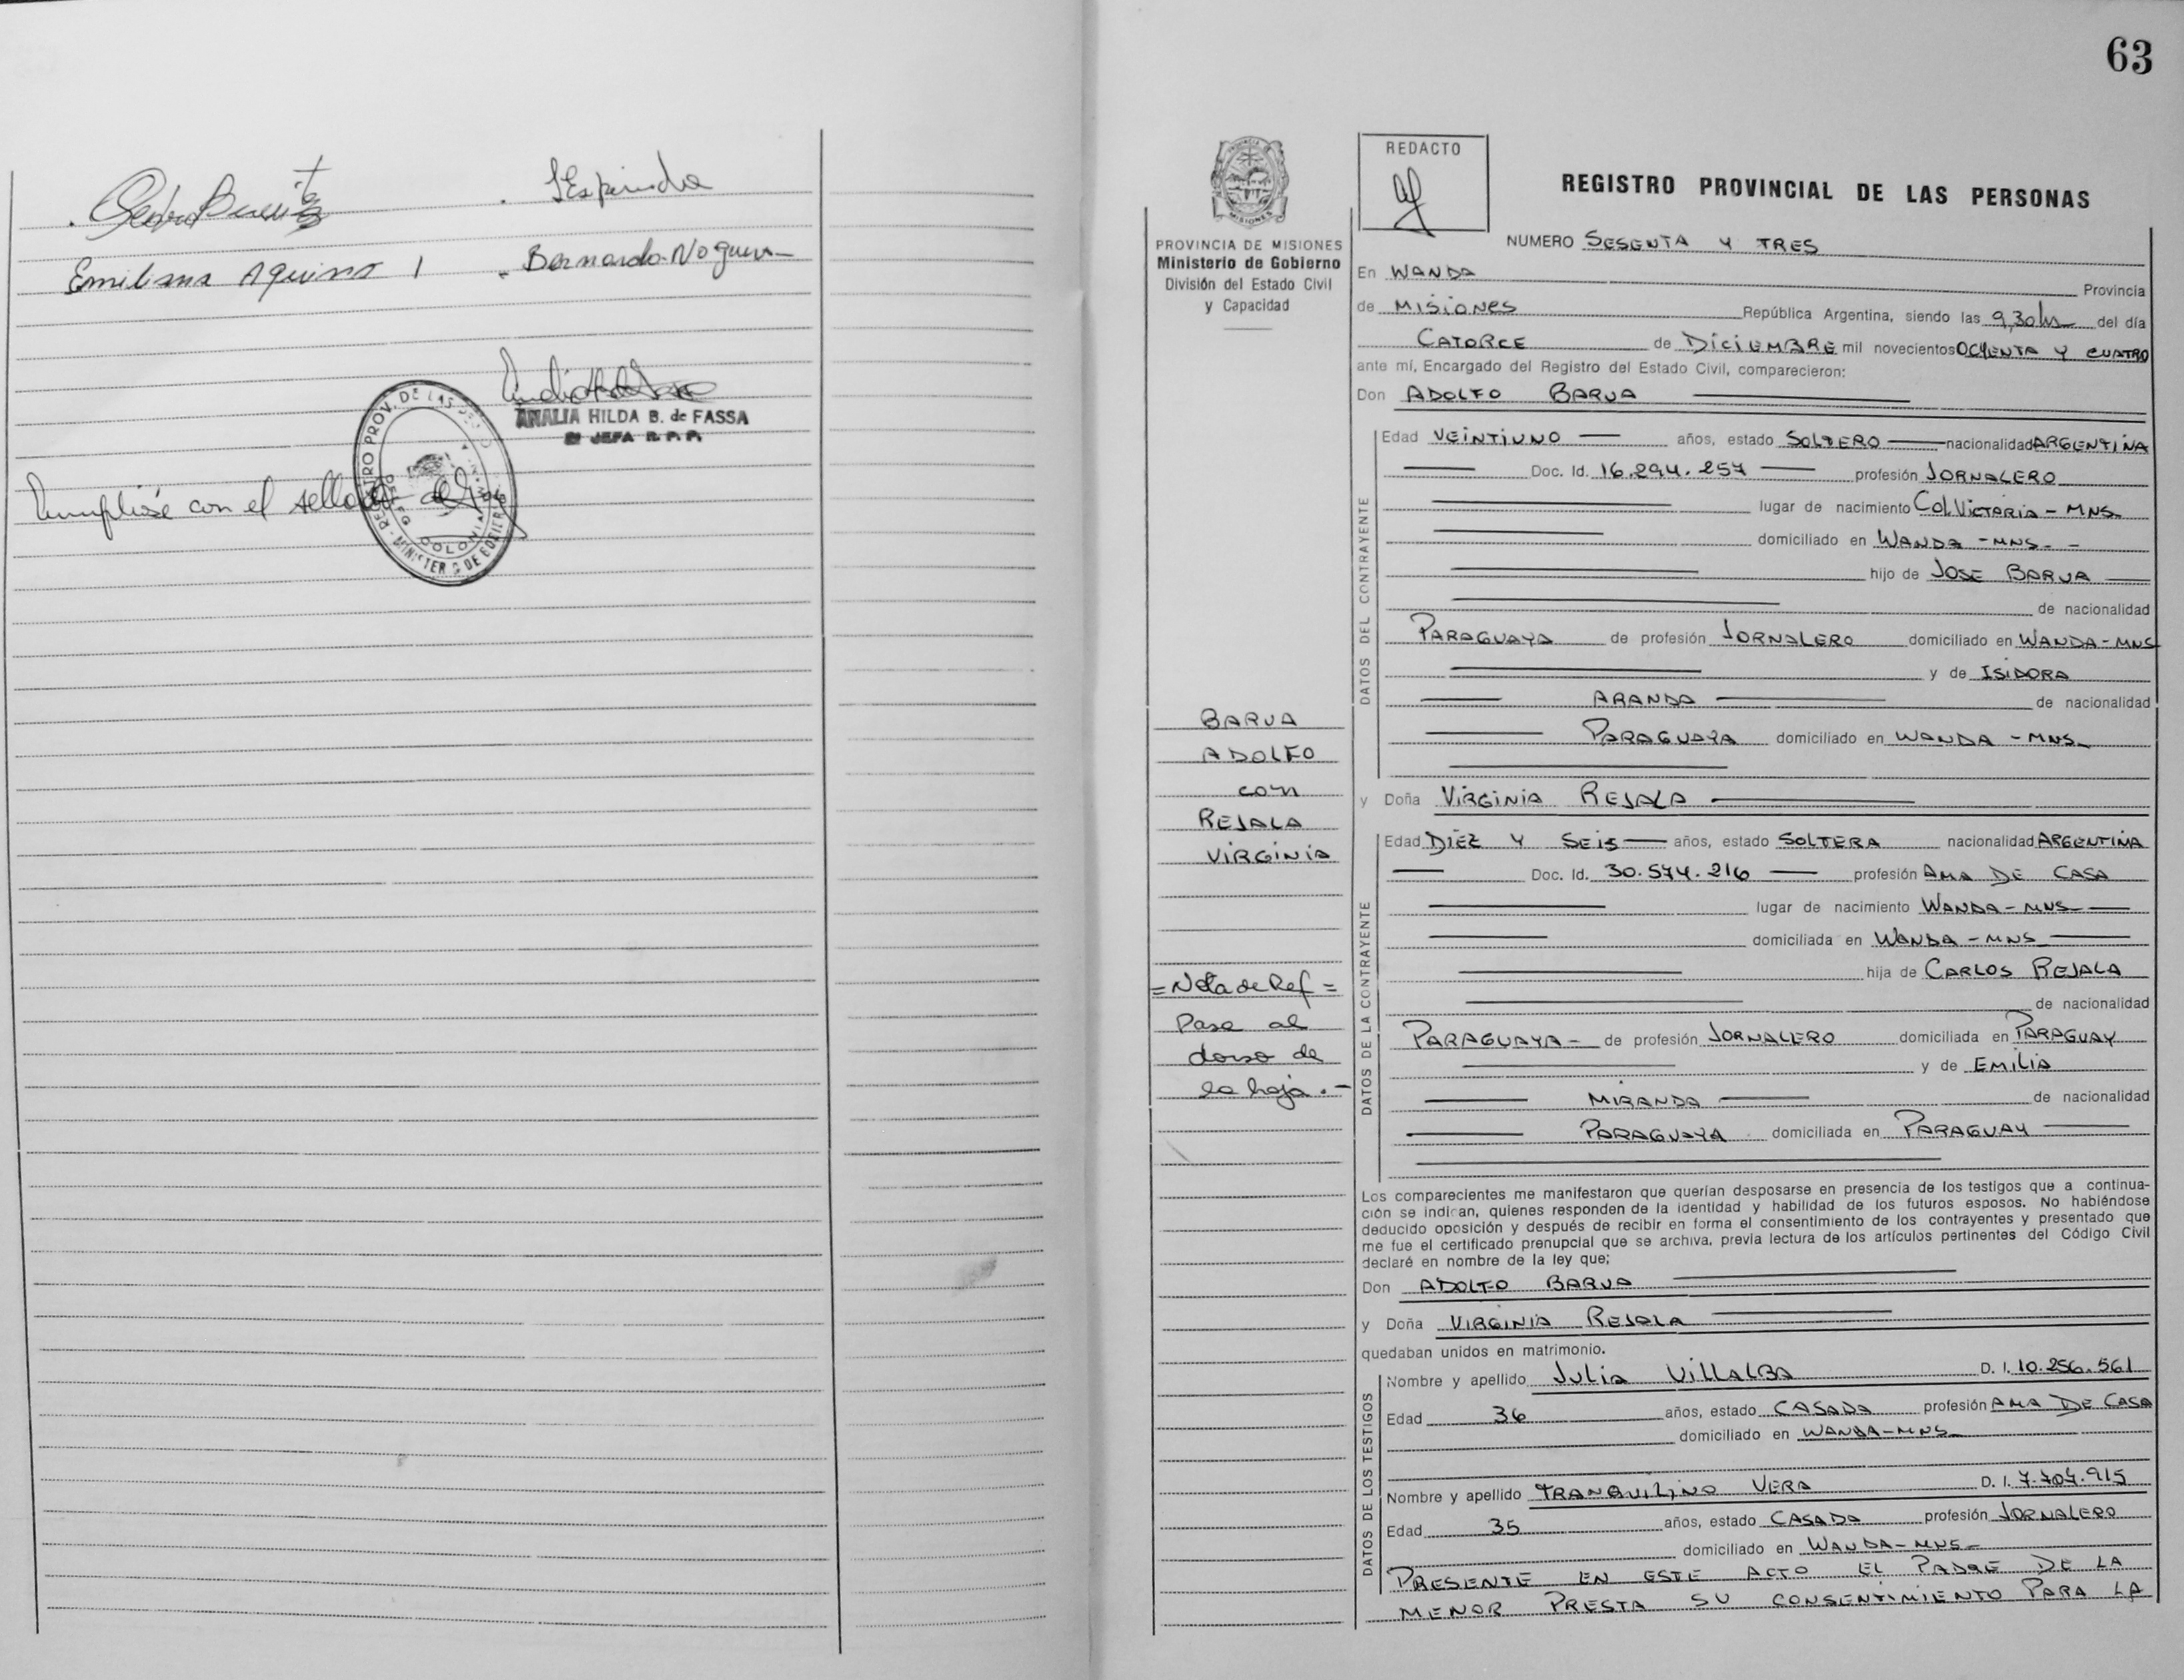 Pedro Benitez
S Espinola
Emiliana Aquino
Bernardo Noguera
ANALIA HILDA B. de FASSA
JEFA R. P. P.
REGISTRO PROV. DE LAS
MINISTERIO DE GOBIERNO
COLONIA
Cumplióse con el sellado de ley
63
REDACTO
REGISTRO PROVINCIAL DE LAS PERSONAS
MISIONES
PROVINCIA DE MISIONES
Ministerio de Gobierno
División del Estado Civil
y Capacidad
NUMERO SESENTA Y TRES
En WANDA Provincia
de MISIONES República Argentina, siendo las 9,30 hs del día
CATORCE de DICIEMBRE mil novecientos OCHENTA Y CUATRO
ante mí, Encargado del Registro del Estado Civil, comparecieron:
Don ADOLFO BARUA
DATOS DEL CONTRAYENTE
Edad VEINTIUNO años, estado SOLTERO nacionalidad ARGENTINA
Doc. Id. 16.294.257 profesión JORNALERO
lugar de nacimiento COL. VICTORIA - MNS.
domiciliado en WANDA - MNS. -
hijo de JOSE BARUA
de nacionalidad
PARAGUAYA de profesión JORNALERO domiciliado en WANDA - MNS
y de ISIDORA
ARANDA de nacionalidad
PARAGUAYA domiciliado en WANDA - MNS
BARUA
ADOLFO
con
REJALA
VIRGINIA
y Doña VIRGINIA REJALA
DATOS DE LA CONTRAYENTE
Edad DIEZ Y SEIS años, estado SOLTERA nacionalidad ARGENTINA
Doc. Id. 30.574.216 profesión AMA DE CASA
lugar de nacimiento WANDA - MNS
domiciliada en WANDA - MNS
hija de CARLOS REJALA
de nacionalidad
PARAGUAYA - de profesión JORNALERO domiciliada en PARAGUAY
y de EMILIA
MIRANDA de nacionalidad
PARAGUAYA domiciliada en PARAGUAY
= Nota de Ref =
Pasa al
dorso de
la hoja. -
Los comparecientes me manifestaron que querían desposarse en presencia de los testigos que a continua-
ción se indican, quienes responden de la identidad y habilidad de los futuros esposos. No habiéndose
deducido oposición y después de recibir en forma el consentimiento de los contrayentes y presentado que
me fue el certificado prenupcial que se archiva, previa lectura de los artículos pertinentes del Código Civil
declaré en nombre de la ley que:
Don ADOLFO BARUA
y Doña VIRGINIA REJALA
quedaban unidos en matrimonio.
DATOS DE LOS TESTIGOS
Nombre y apellido JULIA VILLALBA D. I. 10.256.561
Edad 36 años, estado CASADA profesión AMA DE CASA
domiciliado en WANDA - MNS
Nombre y apellido TRANQUILINO VERA D. I. 7.704.915
Edad 35 años, estado CASADA profesión JORNALERO
domiciliado en WANDA - MNS -
PRESENTE EN ESTE ACTO EL PADRE DE LA
MENOR PRESTA SU CONSENTIMIENTO PARA LA